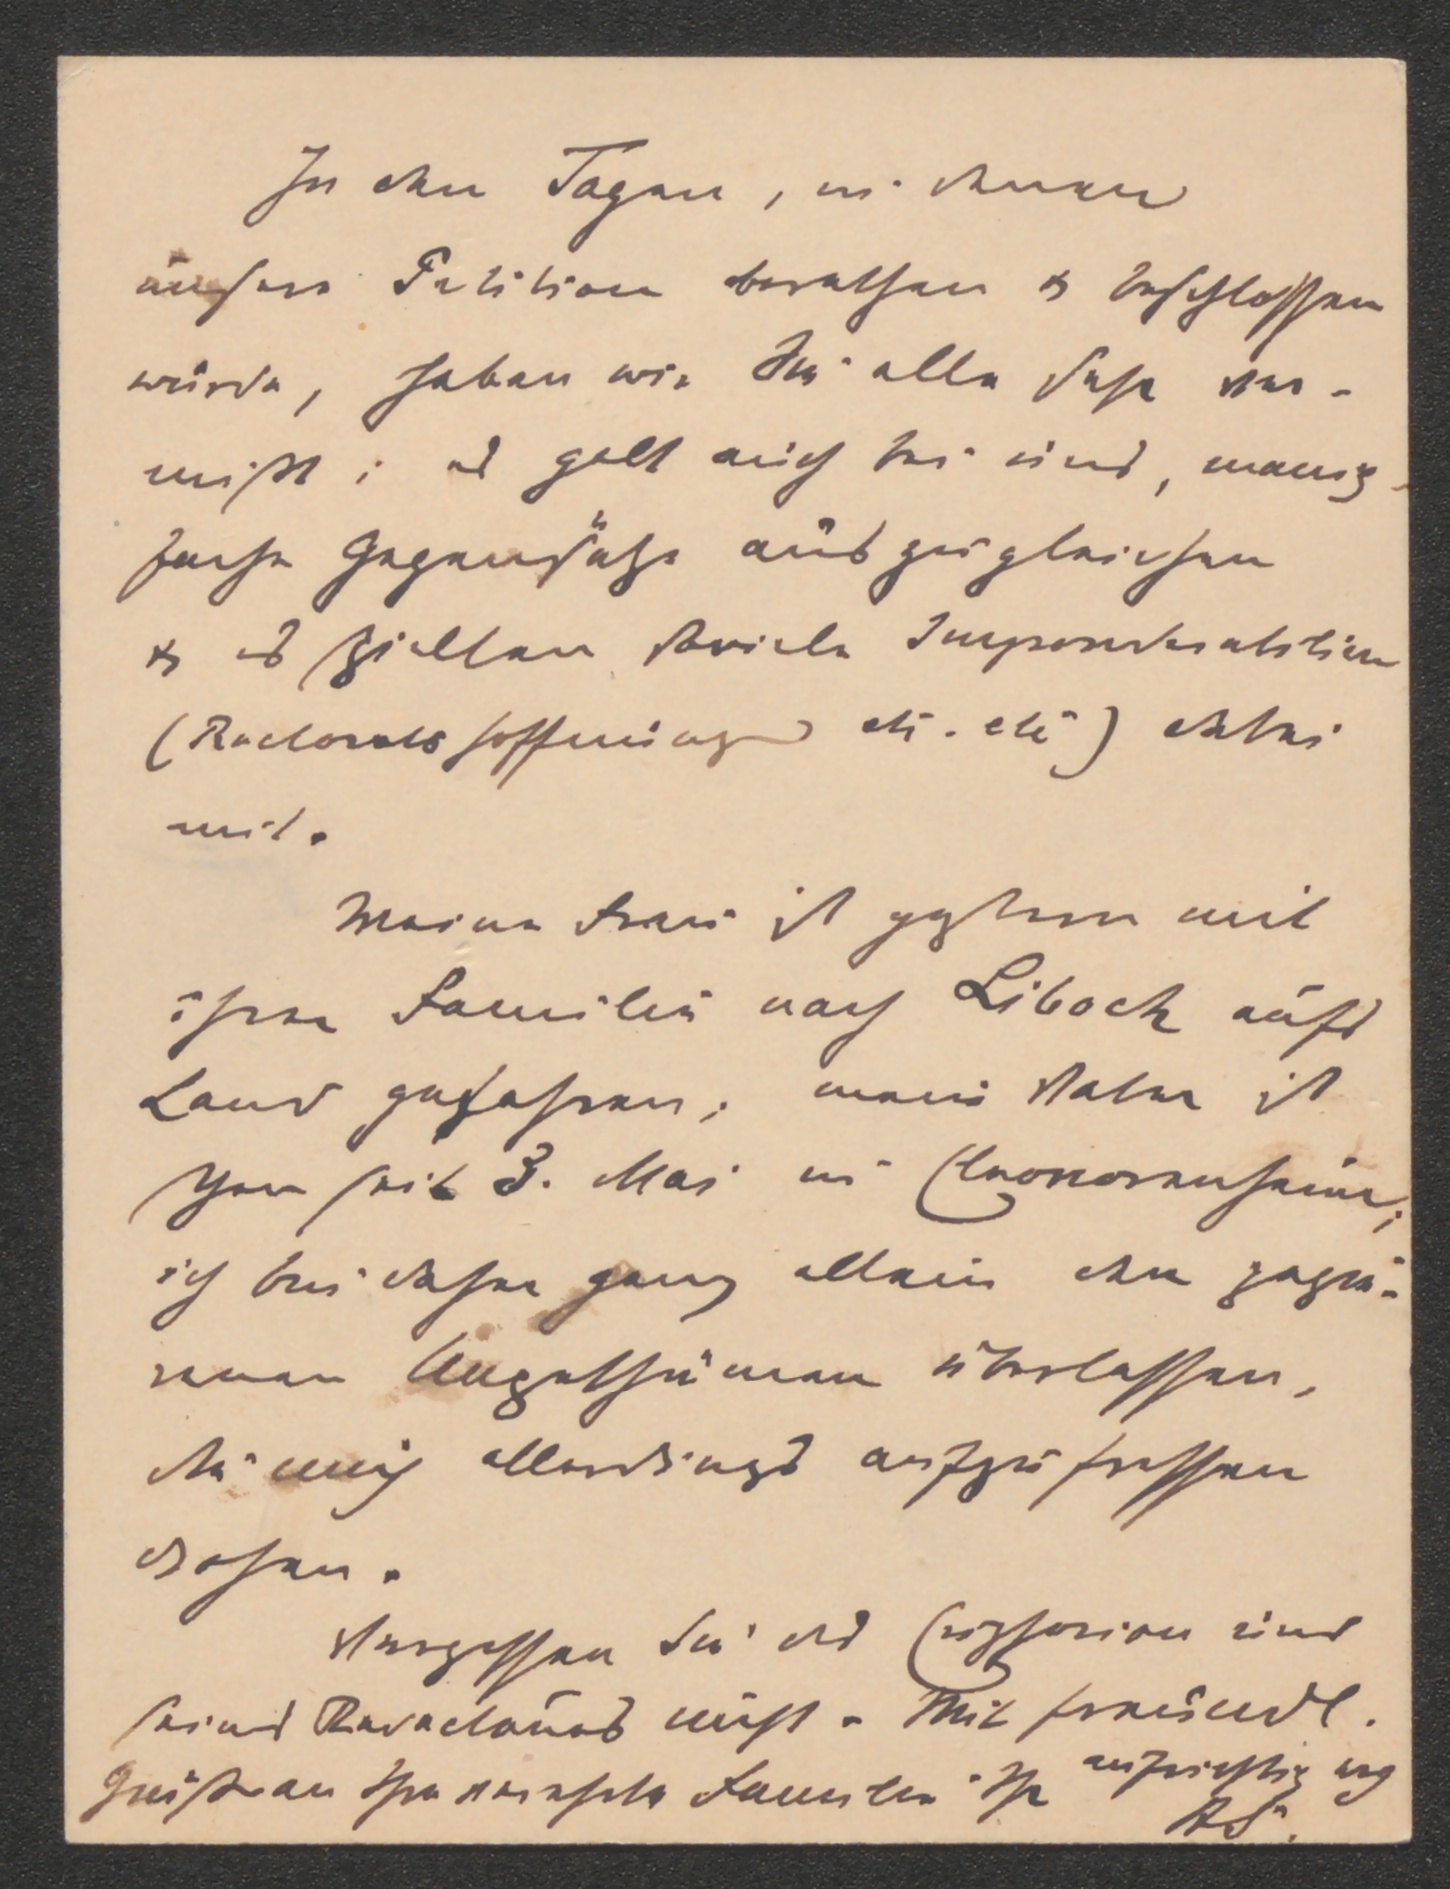 In den Tagen, in denen
unsere Petition berathen & beschlossen
wurde, haben wir Sie alle sehr ver-
mißt; es galt auch bei uns, manig-
fache Gegensätze auszugleichen
& es spielten soviele Imponderabilien
(Rectoratshoffnungen etc. etc) dabei
mit.
Meine Frau ist gestern mit
ihrer Familie nach Liboch aufs
Land gefahren; mein Vater ist
schon seit 3. Mai in
ich bin daher ganz allein den
Ungethümen überlassen,
die mich allerdings aufzufressen
drohen.
Vergessen Sie des Euphorion und
seines Redacteurs nicht. Mit freundl.
Grüßen an Ihre verehrte Familie Ihr aufrichtig erg
AS.